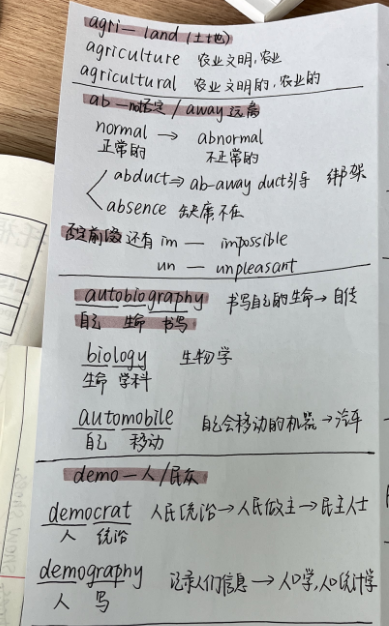 agri— land (土地)
agriculture 农业文明,农业
agricultural 农业文明的,农业的
ab —no否定 / away 远离
normal → abnormal
正常的 不正常的
abduct⇒ ab-away duct引导 绑架
absence 缺席不在
否定前缀 还有 im — impossible
un — unpleasant
autobiography 书写自己的生命→自传
自己 生命 书写
biology 生物学
生命 学科
automobile 自己会移动的机器→汽车
自己 移动
demo —人/民众
democrat 人民统治→人民做主→民主人士
人 统治
demography 记录人们信息 → 人口学,人口统计学
人 写